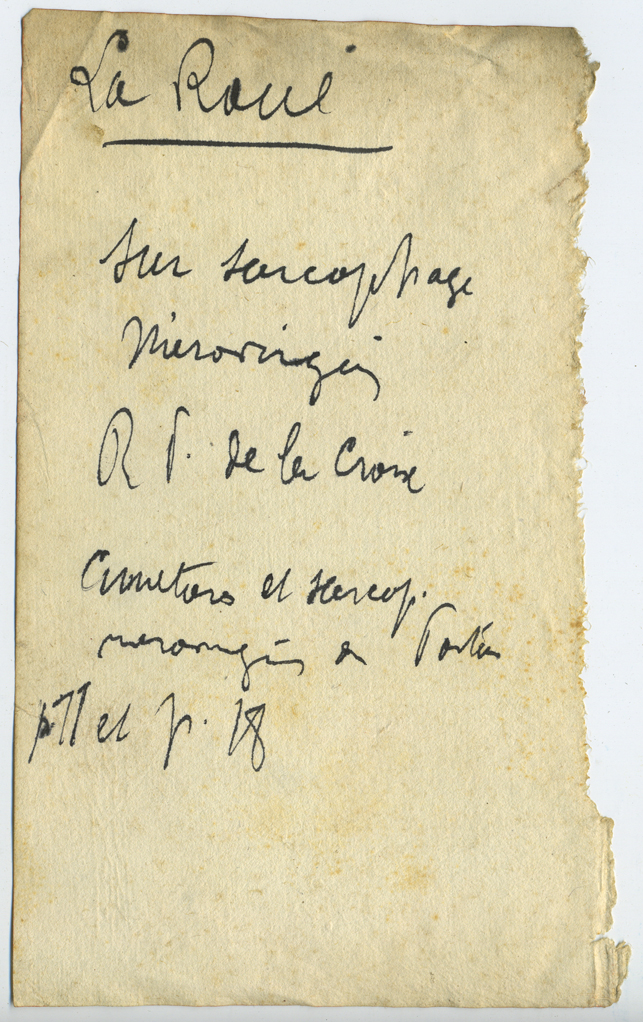 La Roue
Sur sarcophage
Mérovingien
R P. de la Croix
Cimetières et sarcop.
merovingiens du Poitou
p 11 et p. 18